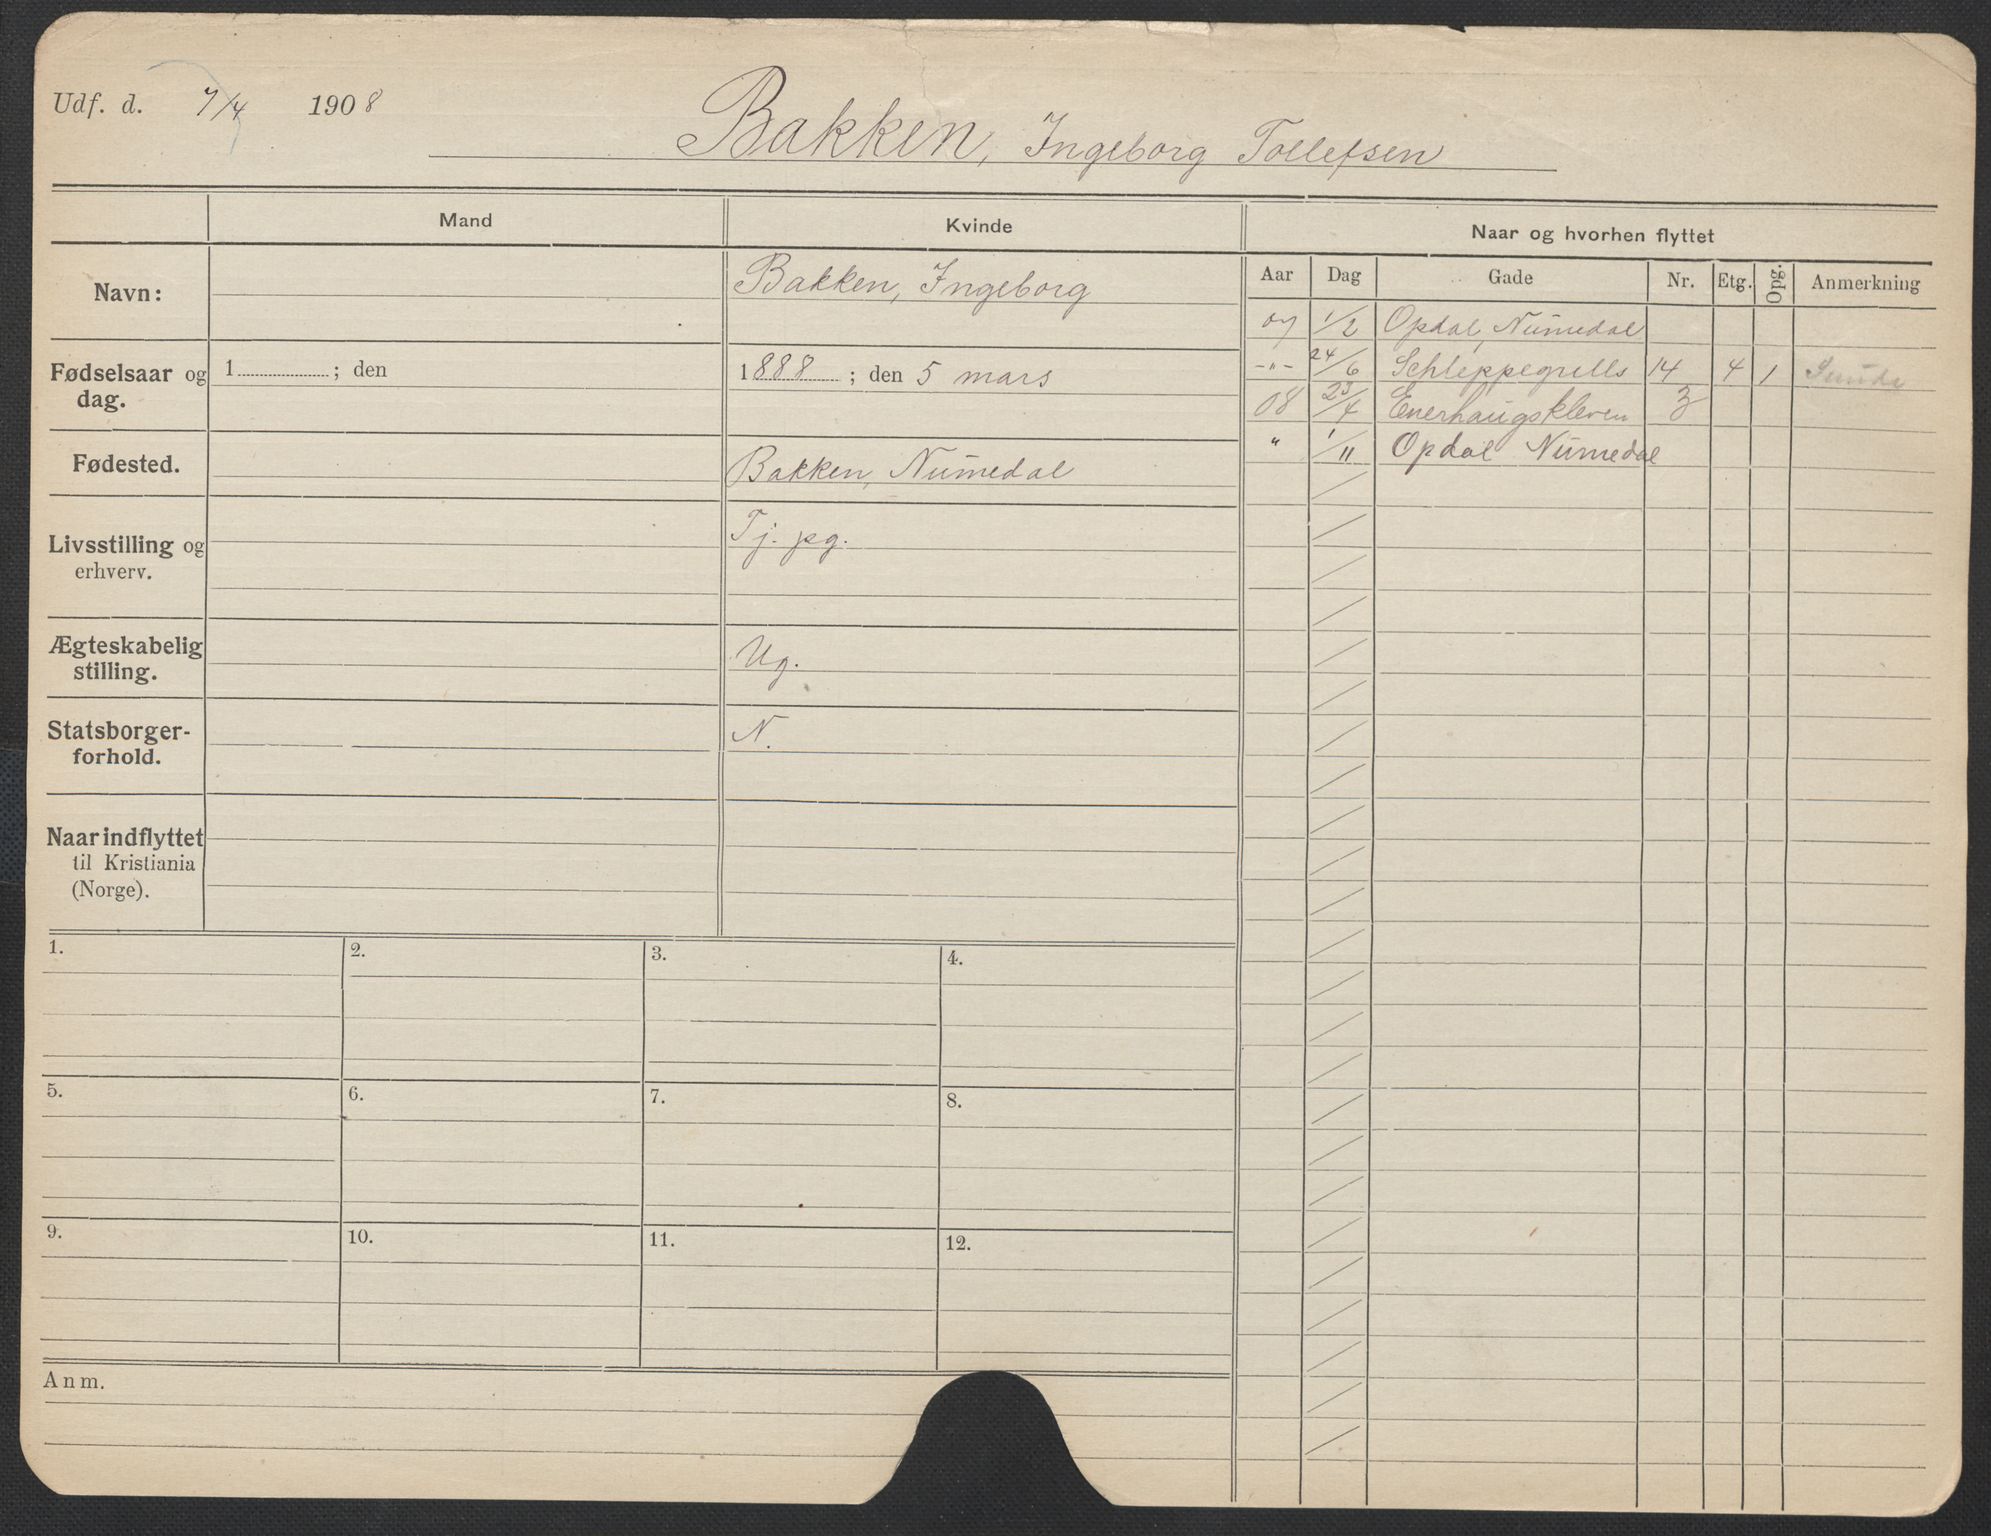 Udf. d. 7/4 1908
Bakken, Ingeborg Tollefsen
Mand
Kvinde
Naar og hvorhen flyttet
Aar Dag Gade Nr. Etg. Opg. Anmerkning
Navn: Bakken, Ingeborg
Fødselsaar og dag.
1 ; den
1888 ; den 5 mars
Fødested.
Bakken, Numedal
Livsstilling og
erhverv.
Tj. pg.
Ægteskabelig
stilling.
Ug.
Statsborger-
forhold.
N.
Naar indflyttet
til Kristiania
(Norge).
07 1/2 Opdal, Numedal
-"- 24/6 Schleppegrells 14 4 1
08 23/4 Enerhaugskleven 3
" 1/11 Opdal Numedal
1. 2. 3. 4.
5. 6. 7. 8.
9. 10. 11. 12.
Anm.